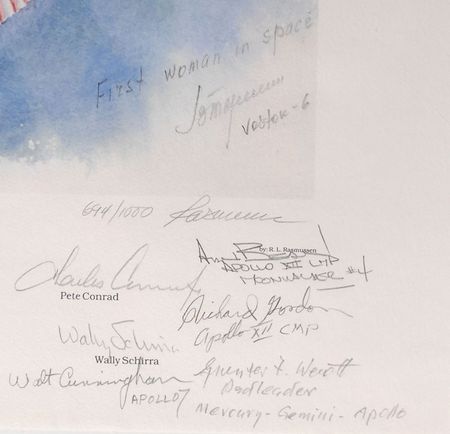 First woman in space
Vostok-6
694/1000 Rasmussen
by: R. L. Rasmussen
Alan Bean
APOLLO XII LMP
MOONWALKER #4
Charles Conrad
Pete Conrad
Richard Gordon
Apollo XII CMP
Wally Schirra
Wally Schirra
Walt Cunningham
APOLLO 7
Guenter F. Wendt
Padleader
Mercury - Gemini - Apollo